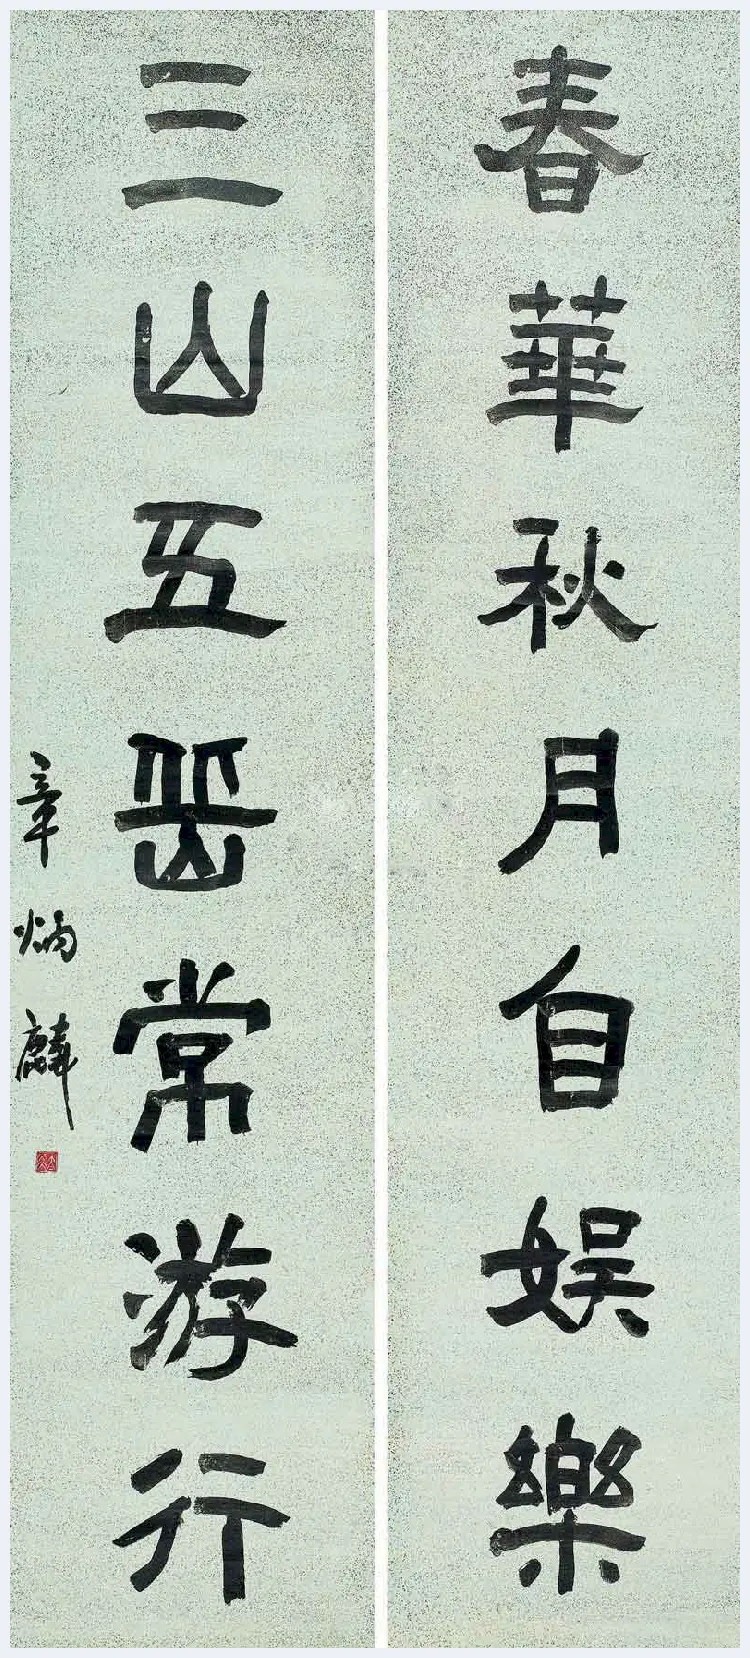 春華秋月自娱樂
三山五岳常游行
章炳麟